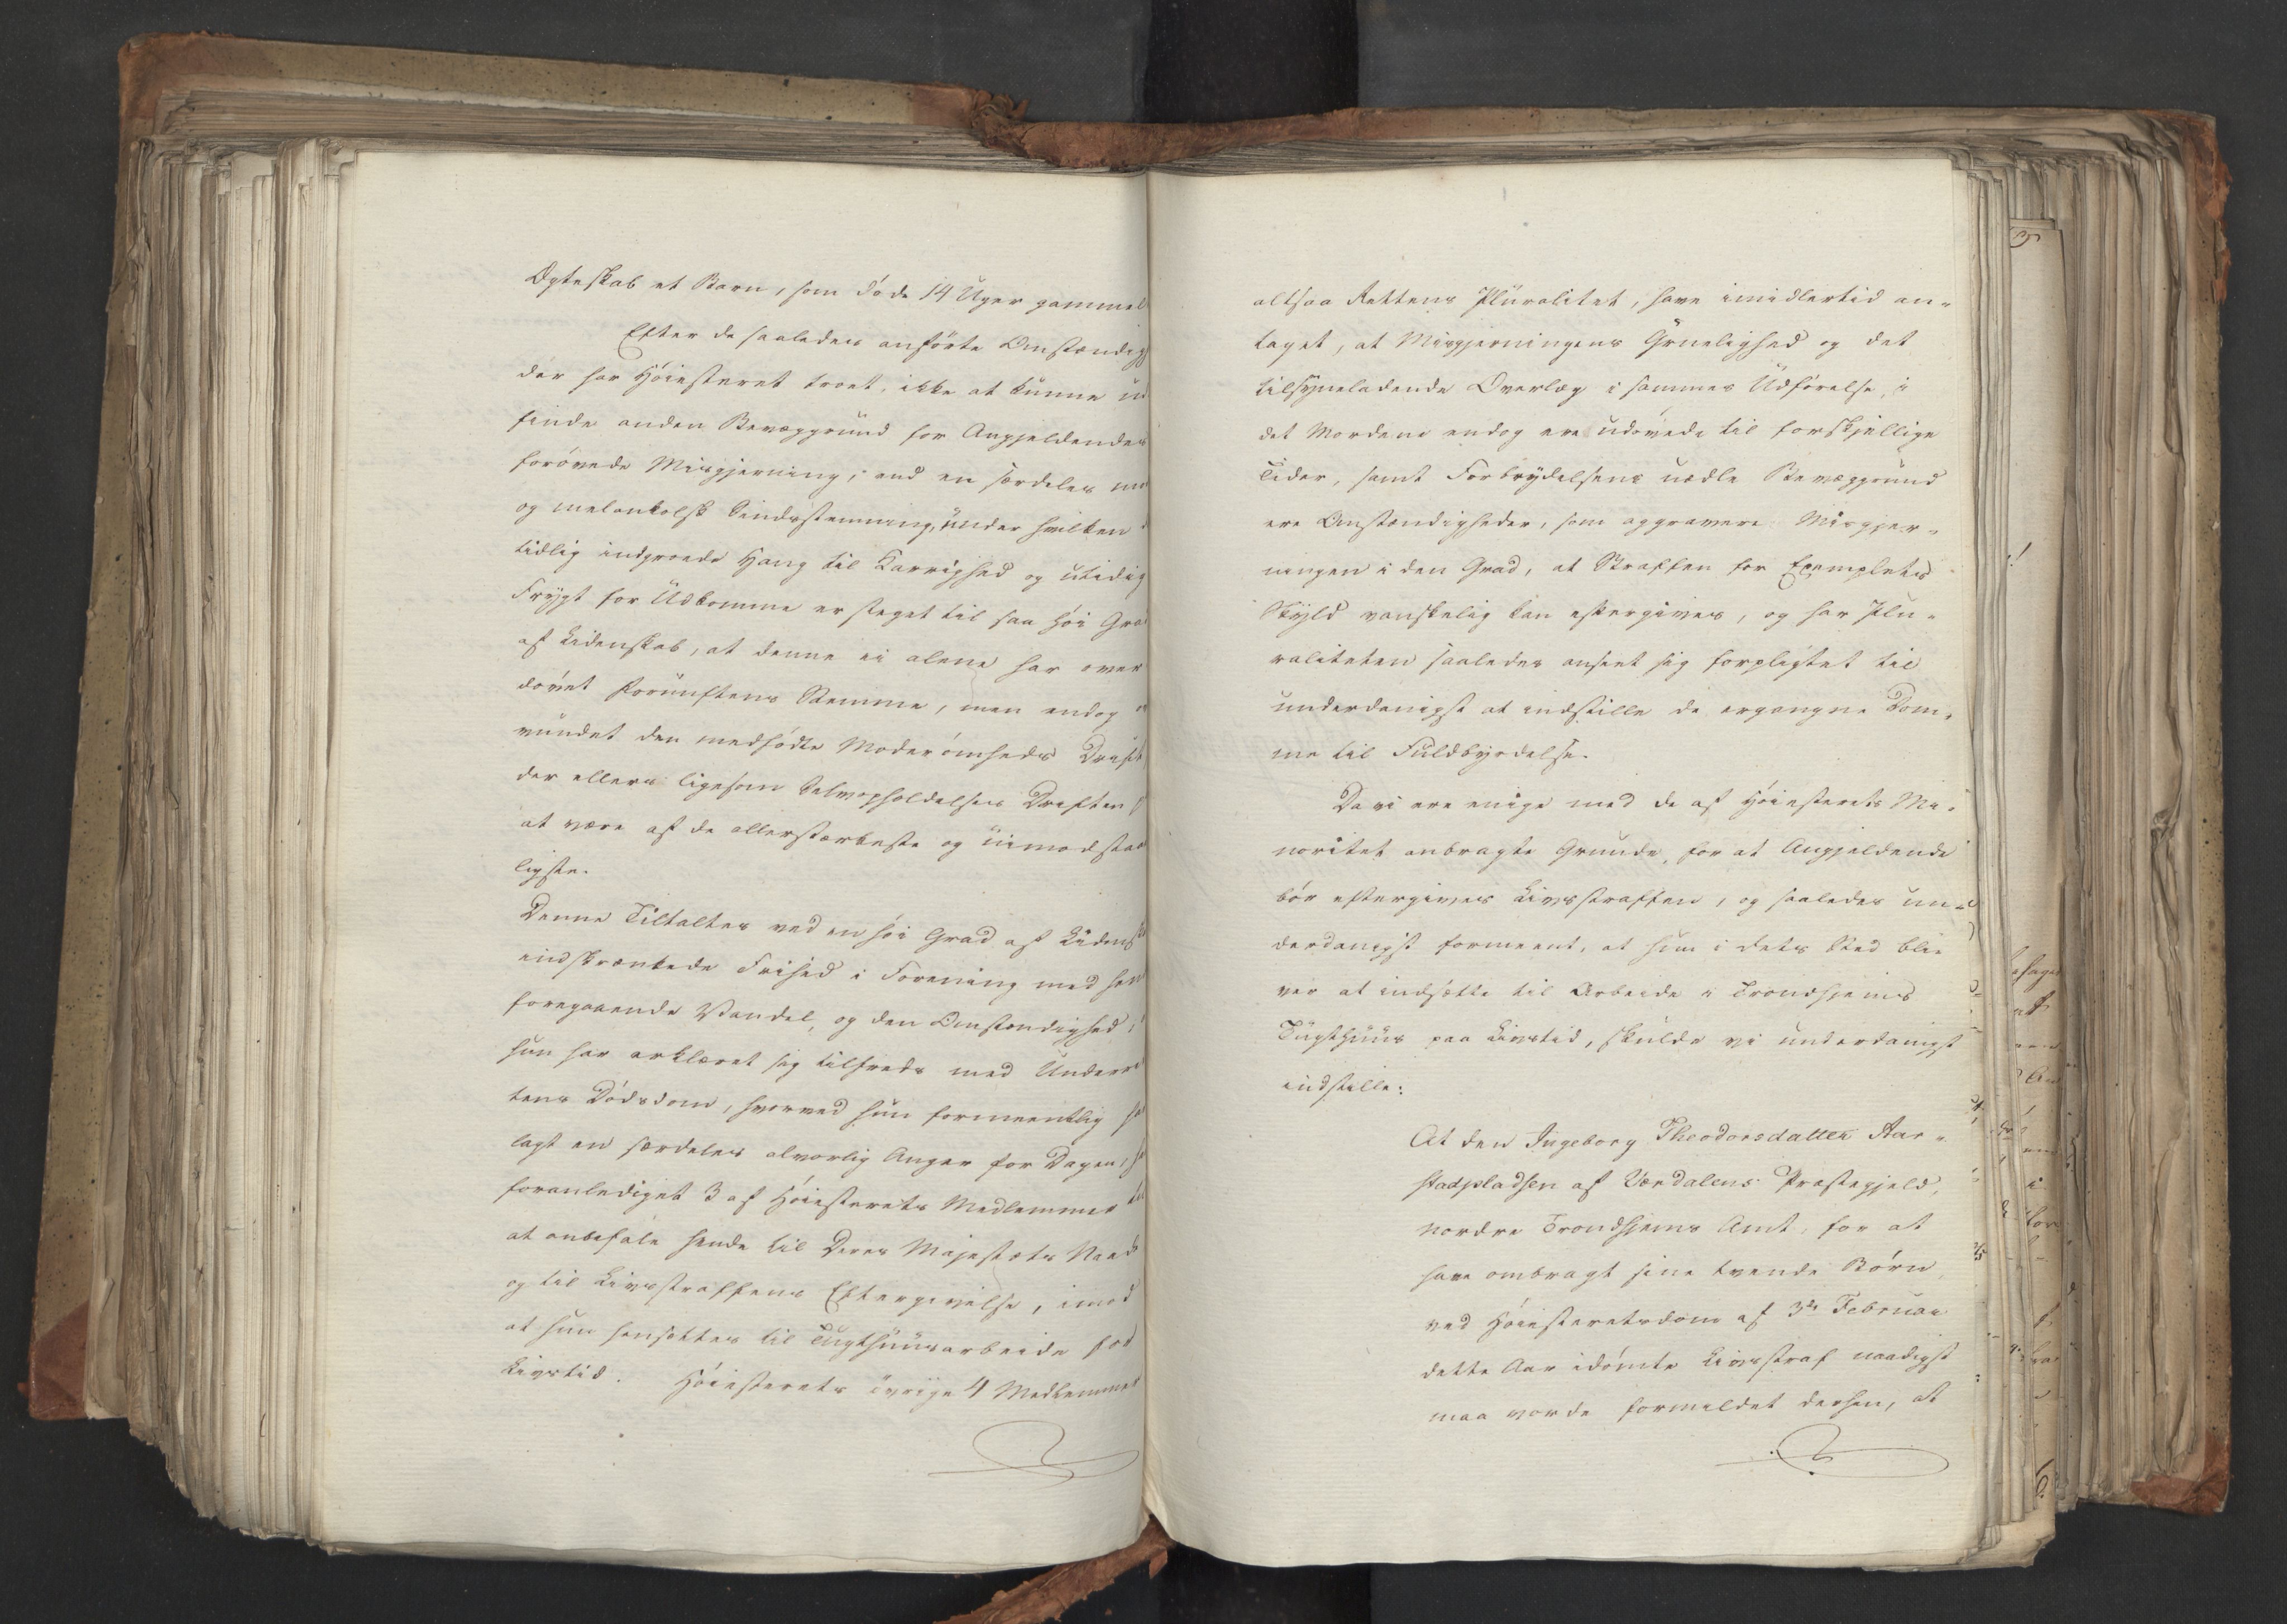 Ægteskab et Barn, som døde 14 Uger gammel
Efter de saaledes anførte Omstændig
der har Høiesteret troet, ikke at kunne ud
finde anden Bevæggrund for Angjeldendes
forøvede Misgjerning, end en særdeles mør
og melankolsk Sindsstemning, under hvilken
tidlig indgroede Hang til Karrighed og utidig
Frygt for Udkomme er steget til saa høi Grad
af Lidenskab, at denne ei alene har over
døvet Fornuftens Stemme, men endog
vundet den medfødte Moderømheds Drift,
der ellers ligesom Selvopholdelses Driften
at være af de allerstærkeste og uimodstaae
ligste.
Denne Tiltaltes ved en høi Grad af Lidensk
indskrænkede Frihed i Forening med hen
foregaaende Vandel, og den Omstændighed,
hun har erklæret sig tilfreds med Underret
tens Dødsdom, hvorved hun formeentlig ha
lagt en særdeles alvorlig Anger for Dagen, ha
foranlediget 3 af Høiesterets Medlemmer til
at anbefale hende til Deres Majestæts Naade
og til Livsstraffens Eftergivelse, imod
at hun hensættes til Tugthuusarbeide for
Livstid. Høiesterets øvrige 4 Medlemmer
altsaa Rettens Pluralitet, have imidlertid an-
taget, at Misgjerningens Gruelighed og det
tilsyneladende Overlæg i sammes Udførelse, i
det Mordene endog ere udøvede til forskjellige
Tider, samt Forbrydelsens uædle Bevæggrund
ere Omstændigheder, som aggravere Misgjer-
ningen i den Grad, at Straffen for Exemplets
Skyld vanskelig kan eftergives, og har Plu-
raliteten saaledes anseet sig forpligtet til
underdanigst at indstille de ergangne Dom-
me til Fuldbyrdelse.
Da vi ere enige med de af Høiesterets Mi-
noritet anbragte Grunde, for at Angjeldende
bør eftergives Livsstraffen, og saaledes un-
derdanigst formeent, at hun i dets Sted bli-
ver at indsætte til Arbeide i Trondhjems
Tugthuus paa Livstid, skulde vi underdanigst
indstille:
At den Ingeborg Theodorsdatter Aar-
stadpladsen af Værdalens Præstegjeld,
nordre Trondhjems Amt, for at
have ombragt sine tvende Børn,
ved Høiesteretsdom af 3de Februar
dette Aar idømte Livsstraf naadigst
maa vorde formildet derhen, at